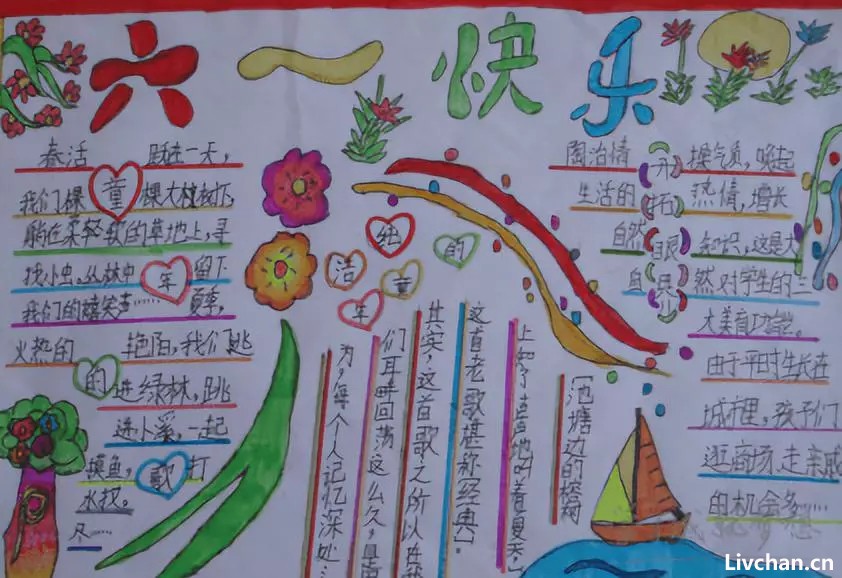 六一快乐
春活 跃在一天,
我们棵 棵大植树下,
躺在柔轻软的草地上,寻
找小虫。丛林中 留下
我们的嬉笑声…… 夏季,
火热的 艳阳,我们跳
进绿林,跳
进小溪,一起
摸鱼, 打
水仗。
尽……
童
年
的
歌
纯
洁
的
童
年
“池塘边的榕树
上,知了声声地叫着夏天”
这首老歌堪称经典。
其实,这首歌之所以在我
们耳畔回荡这么久,是
为,每个人记忆深处…
陶冶情 操气质,唤起
生活的 热情,增长
自然 知识,这是大
自 然对学生的三
大美育功能。
由于平时生长在
城市里,孩子们
逛商场、走亲戚
的机会多……
开
拓
眼
界
Livchan.cn